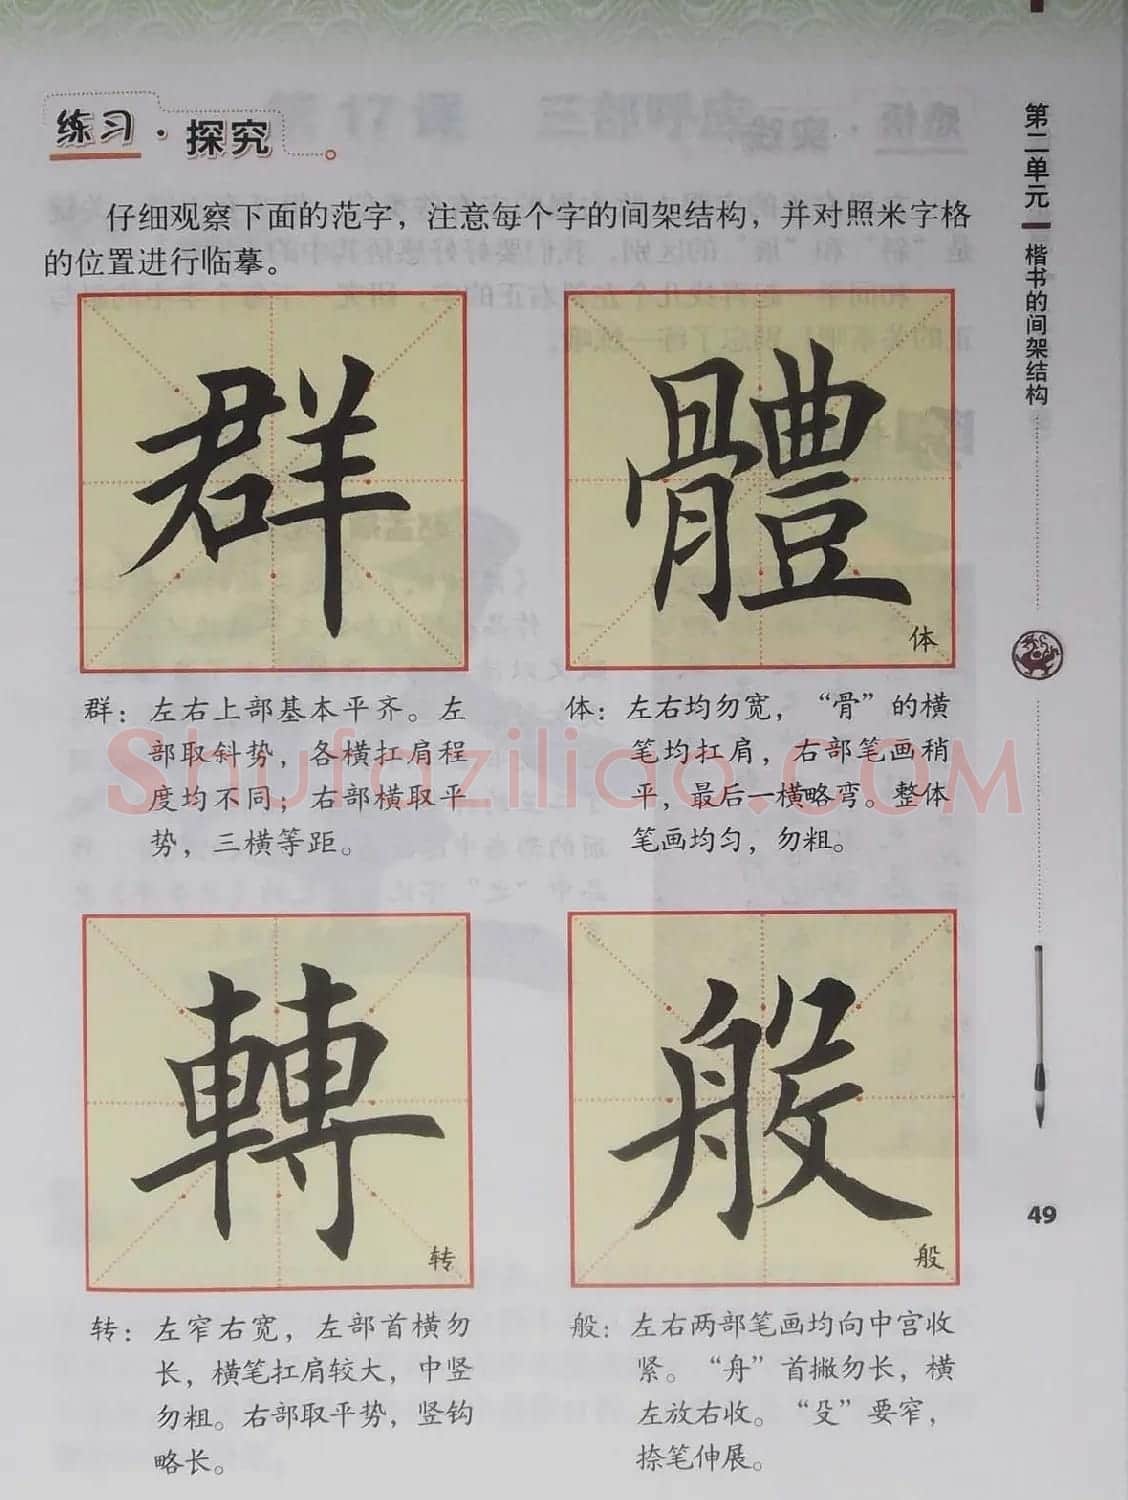 练习·探究
仔细观察下面的范字，注意每个字的间架结构，并对照米字格
的位置进行临摹。
群
體
体
群：左右上部基本平齐。左
部取斜势，各横扛肩程
度均不同；右部横取平
势，三横等距。
体：左右均勿宽，“骨”的横
笔均扛肩，右部笔画稍
平，最后一横略弯。整体
笔画均匀，勿粗。
Shufaziliao.COM
轉
转
般
般
转：左窄右宽，左部首横勿
长，横笔扛肩较大，中竖
勿粗。右部取平势，竖钩
略长。
般：左右两部笔画均向中宫收
紧。“舟”首撇勿长，横
左放右收。“殳”要窄，
捺笔伸展。
第二单元
楷书的间架结构
49